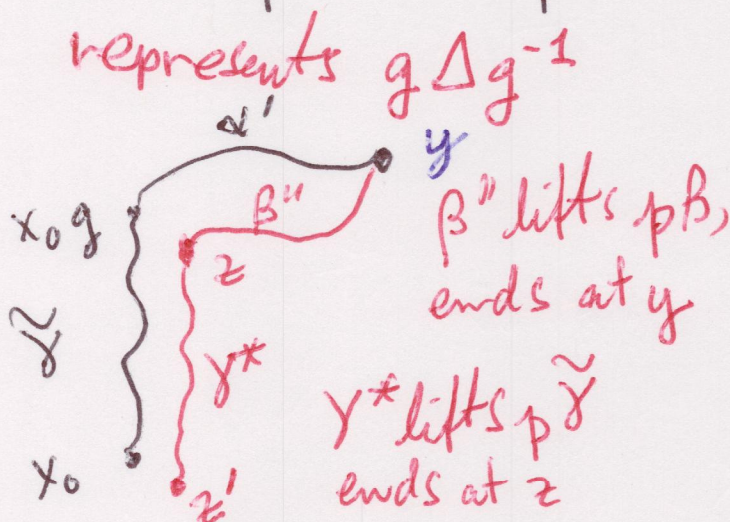 represents g Δ g⁻¹
α' y
x₀g β" β" lifts pβ,
z ends at y
γ̃ γ* γ* lifts p γ̃
x₀ z' ends at z